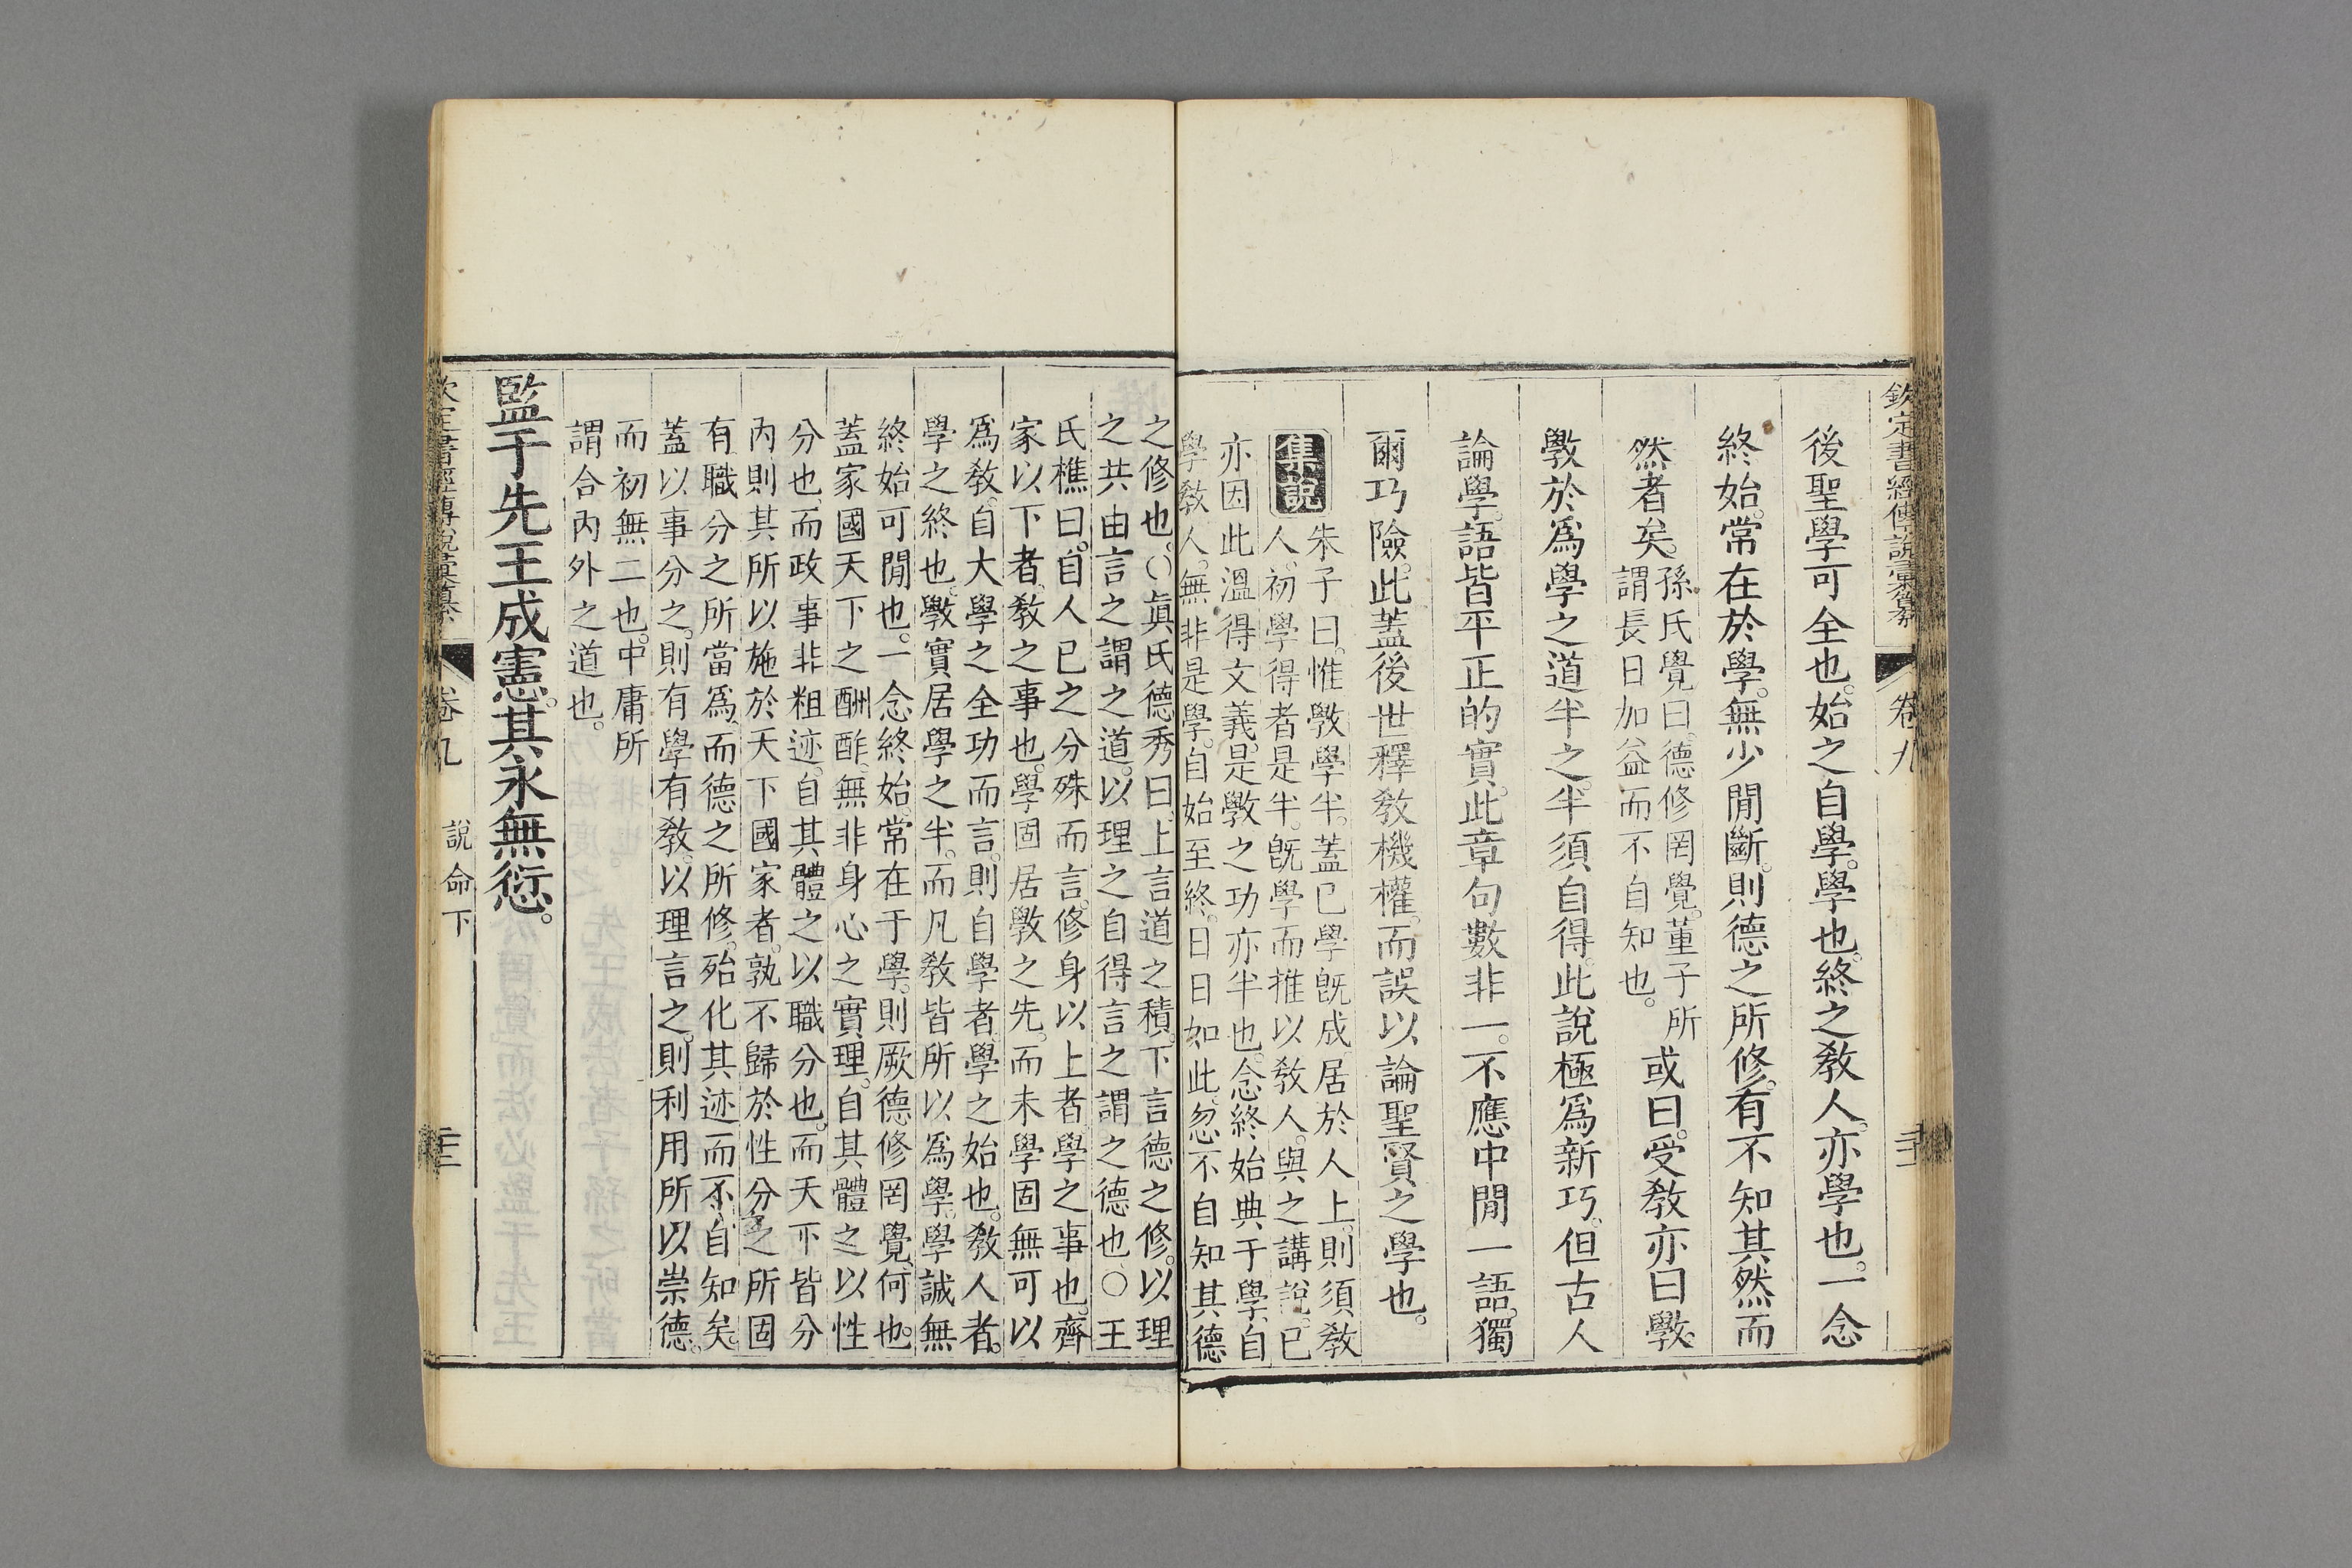 欽定書經傳說彙纂　卷九
後聖學可全也。始之自學。學也。終之教人。亦學也。一念
終始。常在於學。無少閒斷。則德之所修。有不知其然而
然者矣。
孫氏覺曰。德修罔覺。董子所
謂長日加益而不自知也。
或曰。受教亦曰斆。
斆於爲學之道半之。半須自得。此說極爲新巧。但古人
論學。語皆平正的實。此章句數非一。不應中閒一語。獨
爾巧險。此蓋後世釋教機權。而誤以論聖賢之學也。
集說
朱子曰。惟斆學半。蓋已學旣成。居於人上。則須教
人。初學得者是半。旣學而推以教人。與之講說。已
亦因此溫得文義。是斆之功亦半也。念終始典于學。自
學教人。無非是學。自始至終。日日如此。忽不自知其德
之修也。○眞氏德秀曰。上言道之積。下言德之修。以理
之共由言之謂之道。以理之自得言之謂之德也。○王
氏樵曰。自人已之分殊而言。修身以上者。學之事也。齊
家以下者。教之事也。學固居斆之先。而未學固無可以
爲教。自大學之全功而言。則自學者。學之始也。教人者。
學之終也。斆實居學之半。而凡教皆所以爲學。學誠無
終始可閒也。一念終始。常在于學。則厥德修罔覺。何也。
蓋家國天下之酬酢。無非身心之實理。自其體之以性
分也。而政事非粗迹。自其體之以職分也。而天下皆分
內則其所以施於天下國家者。孰不歸於性分之所固
有。職分之所當爲。而德之所修。殆化其迹而不自知矣。
蓋以事分之。則有學有教。以理言之。則利用所以崇德。
而初無二也。中庸所
謂合內外之道也。
監于先王成憲。其永無愆。
說命下